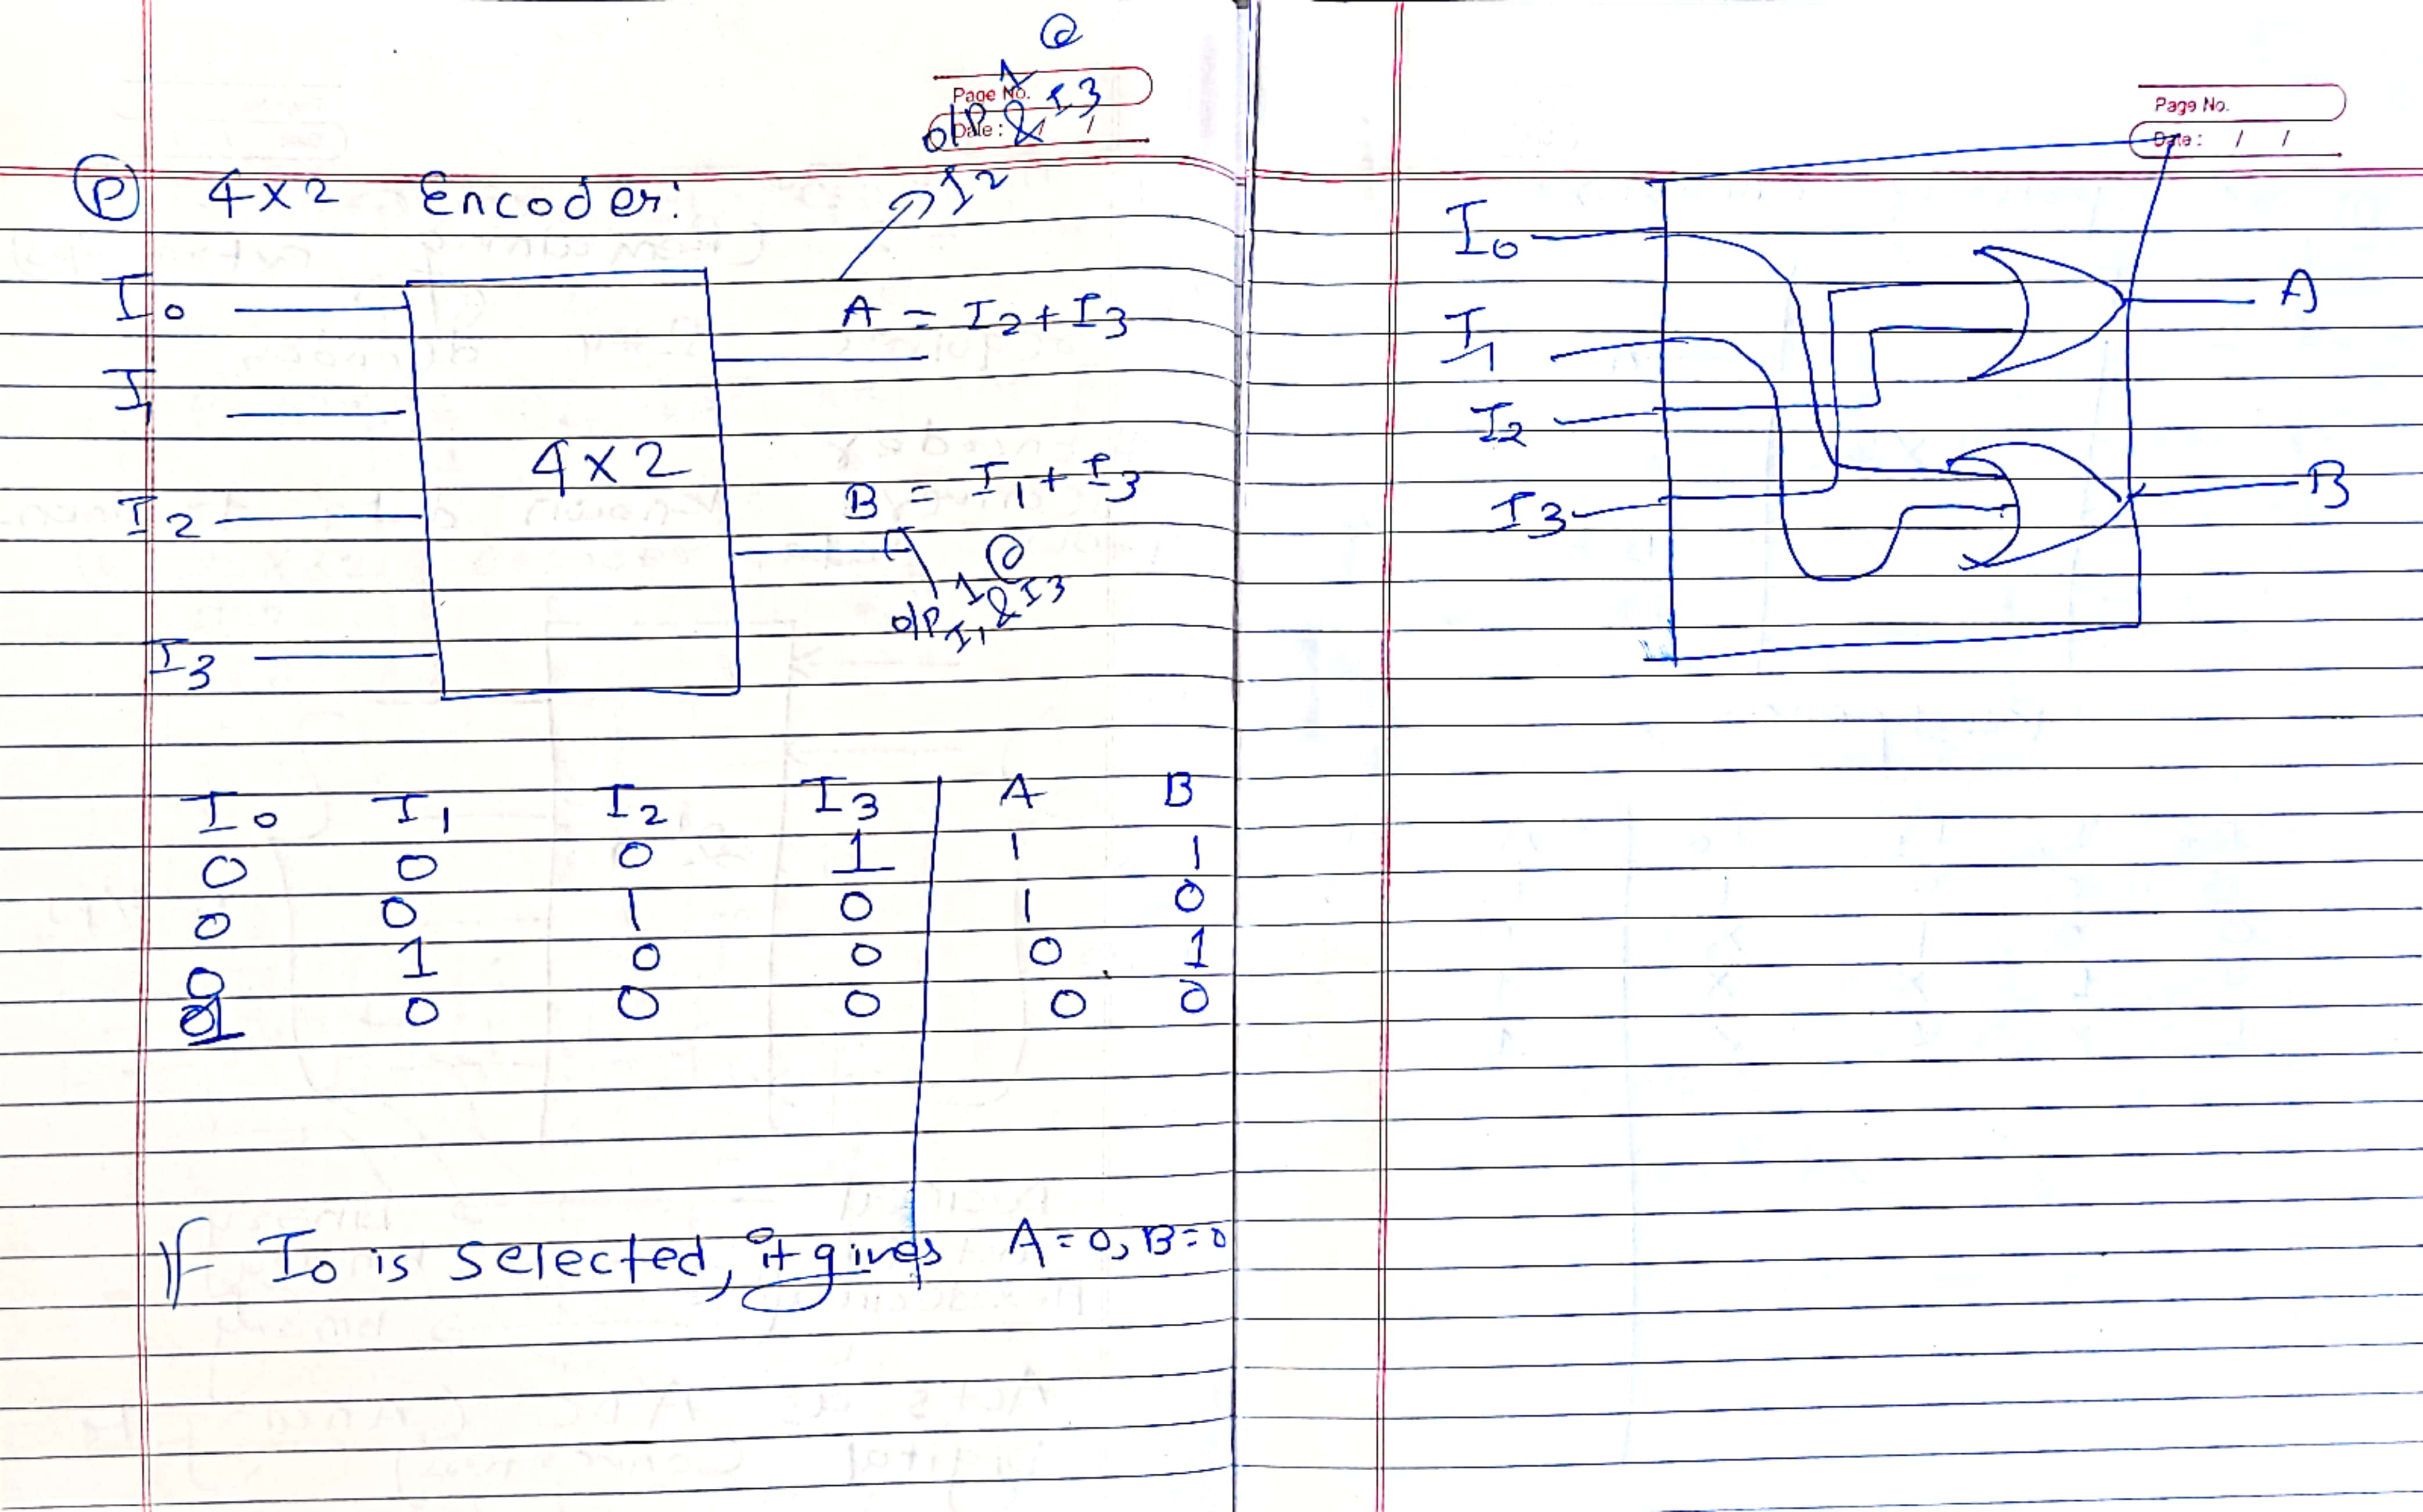 Page No.
Date: / /
1 @
O/P & I3
I2
P 4x2 Encoder:
I0
A = I2 + I3
I1
4x2
B = I1 + I3
I2
O/P 1 @
I1 & I3
I3
I0 I1 I2 I3 A B
0 0 0 1 1 1
0 0 1 0 1 0
0 1 0 0 0 1
1 0 0 0 0 0
If I0 is selected, it gives A=0, B=0
Page No.
Date: / /
I0
A
I1
I2
B
I3